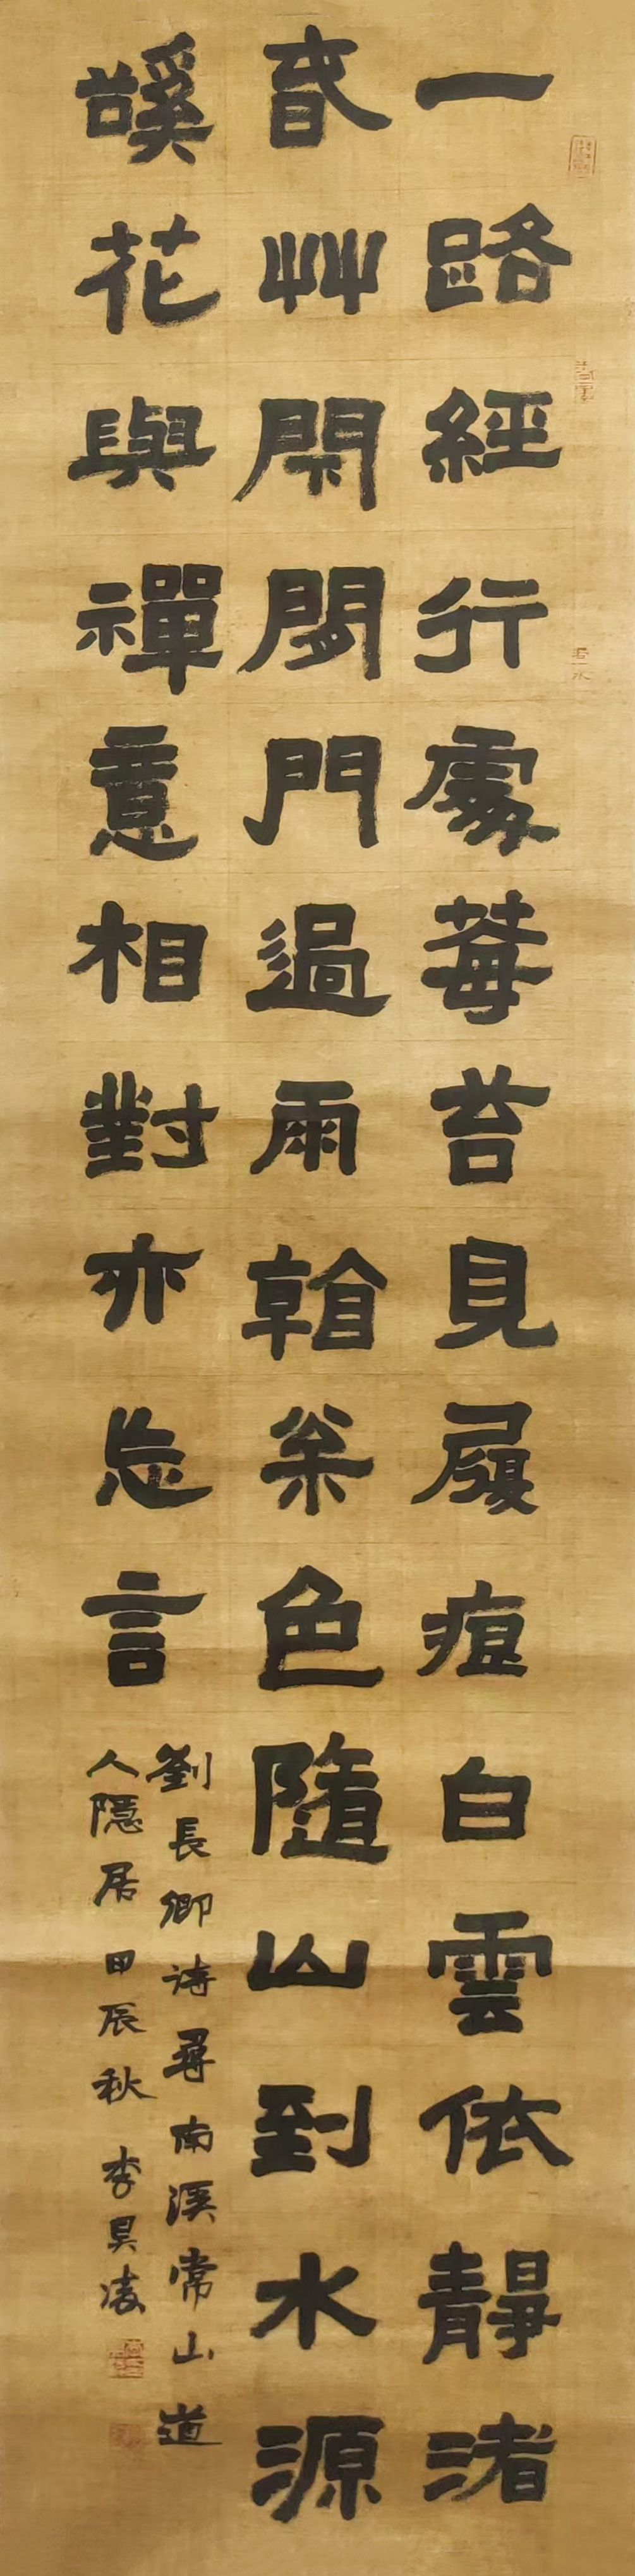 一路經行處莓苔見履痕白雲依靜渚
春艸閑閉門過雨看枀色隨山到水源
谿花與禪意相對亦忘言
劉長卿詩尋南溪常山道
人隱居 甲辰秋 李昊凌